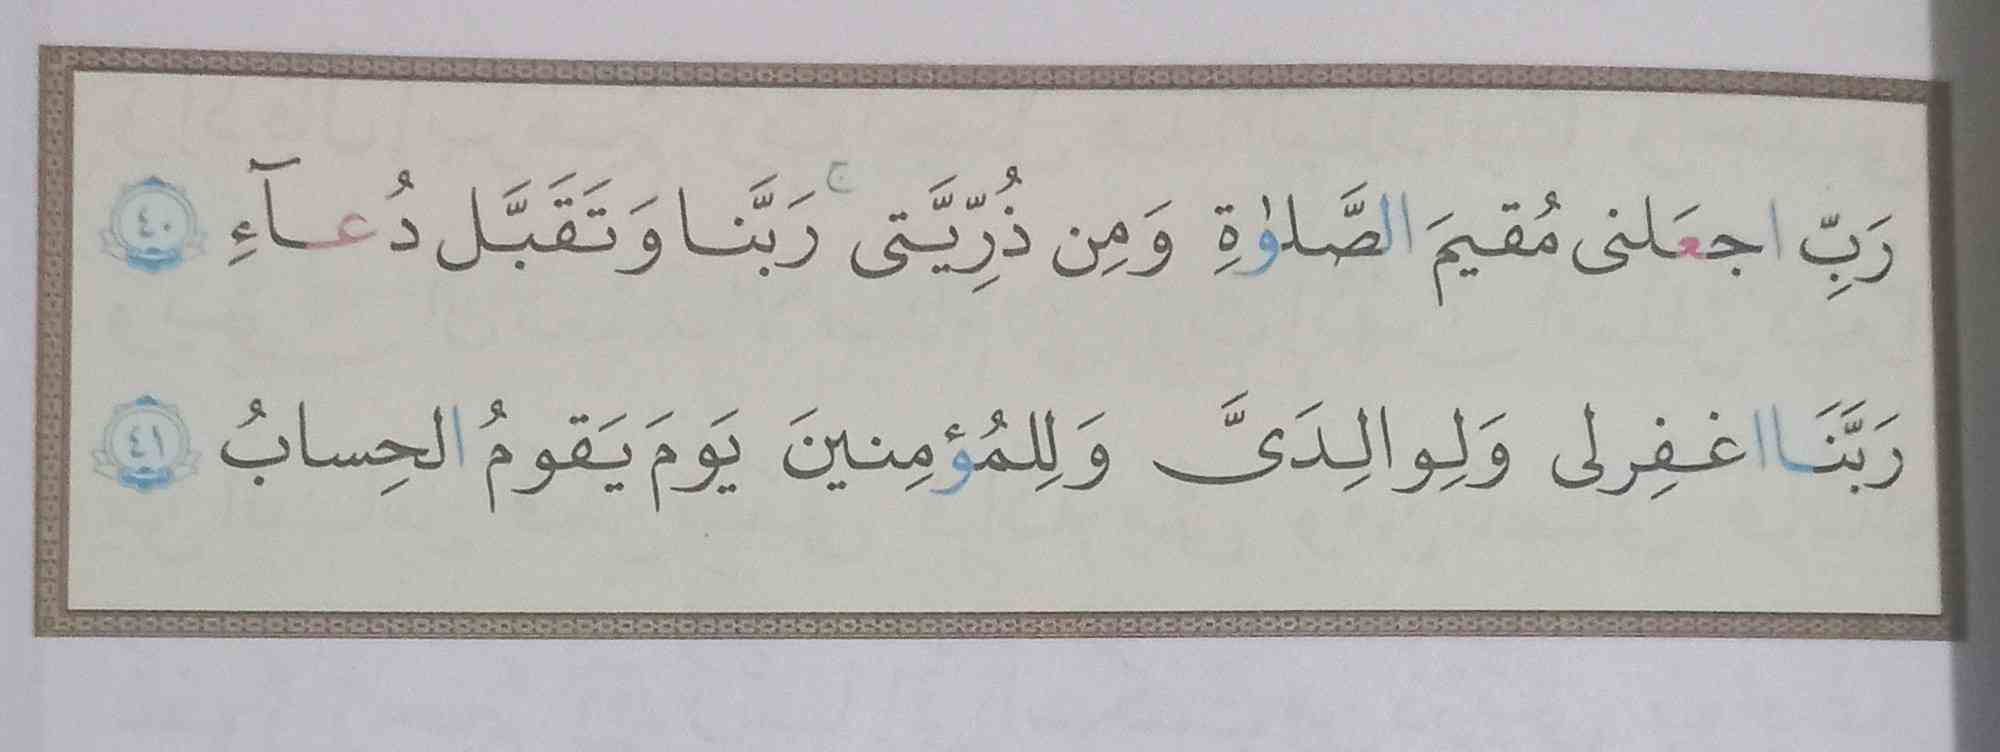 رَبِّ اجعَلنی مُقیمَ الصَّلوٰةِ وَمِن ذُرِّیَّتی ۚ رَبَّنا وَتَقَبَّل دُعآءِ ﴿٤٠﴾
رَبَّنَا اغفِرلی وَلِوالِدَیَّ وَلِلمُؤمِنینَ یَومَ یَقومُ الحِسابُ ﴿٤١﴾